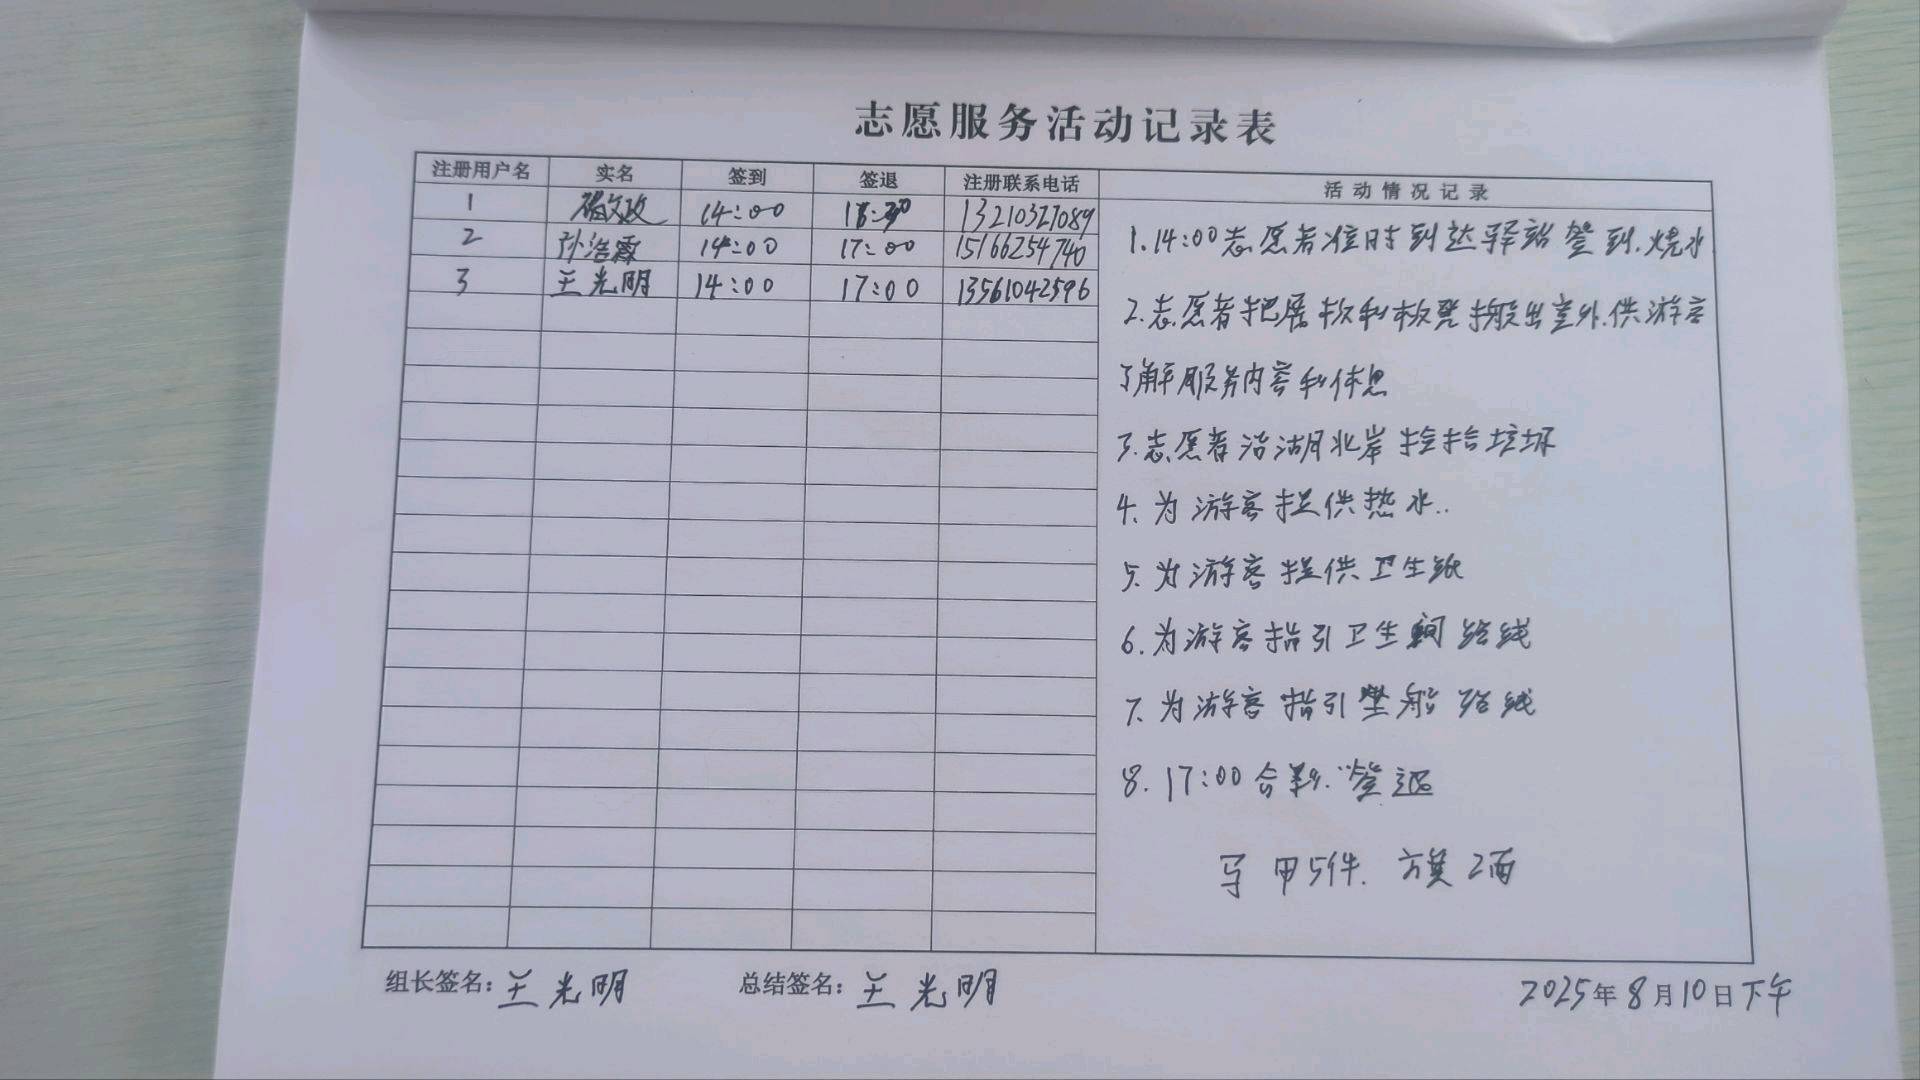 志愿服务活动记录表
注册用户名 实名 签到 签退 注册联系电话 活动情况记录
1 14:00 13210327089
2 孙浩霖 14:00 17:00 15166254740
3 王光明 14:00 17:00 13561042596
1.14:00志愿者准时到达驿站签到.烧水
2.志愿者把展板和板凳搬出室外.供游客
了解服务内容和休息
3.志愿者沿湖北岸捡拾垃圾
4.为游客提供热水..
5.为游客提供卫生纸
6.为游客指引卫生间路线
7.为游客指引坐船路线
8.17:00合影.签退
马甲5件.旗2面
组长签名:王光明 总结签名:王光明
2025年8月10日下午